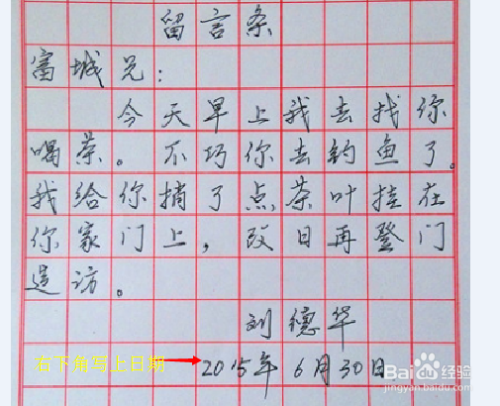 留言条
富城兄：
今天早上我去找你
喝茶。不巧你去钓鱼了。
我给你捎了点茶叶挂在
你家门上，改日再登门
造访。
刘德华
右下角写上日期
2015年6月30日
Baidu经验